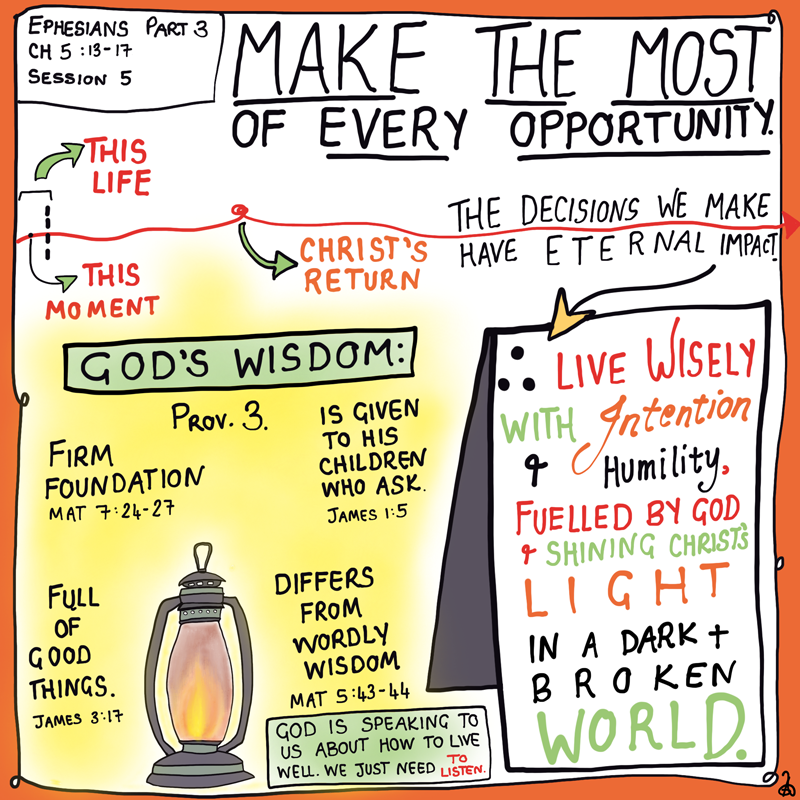 EPHESIANS PART 3
CH 5:13-17
SESSION 5
MAKE THE MOST
OF EVERY OPPORTUNITY.
THIS
LIFE
THIS
MOMENT
CHRIST'S
RETURN
THE DECISIONS WE MAKE
HAVE ETERNAL IMPACT.
GOD'S WISDOM:
PROV. 3.
FIRM
FOUNDATION
MAT 7:24-27
IS GIVEN
TO HIS
CHILDREN
WHO ASK.
JAMES 1:5
FULL
OF
GOOD
THINGS.
JAMES 3:17
DIFFERS
FROM
WORDLY
WISDOM
MAT 5:43-44
GOD IS SPEAKING TO
US ABOUT HOW TO LIVE
WELL. WE JUST NEED TO
LISTEN.
∴ LIVE WISELY
WITH Intention
& Humility,
FUELLED BY GOD
& SHINING CHRIST'S
LIGHT
IN A DARK +
BROKEN
WORLD.